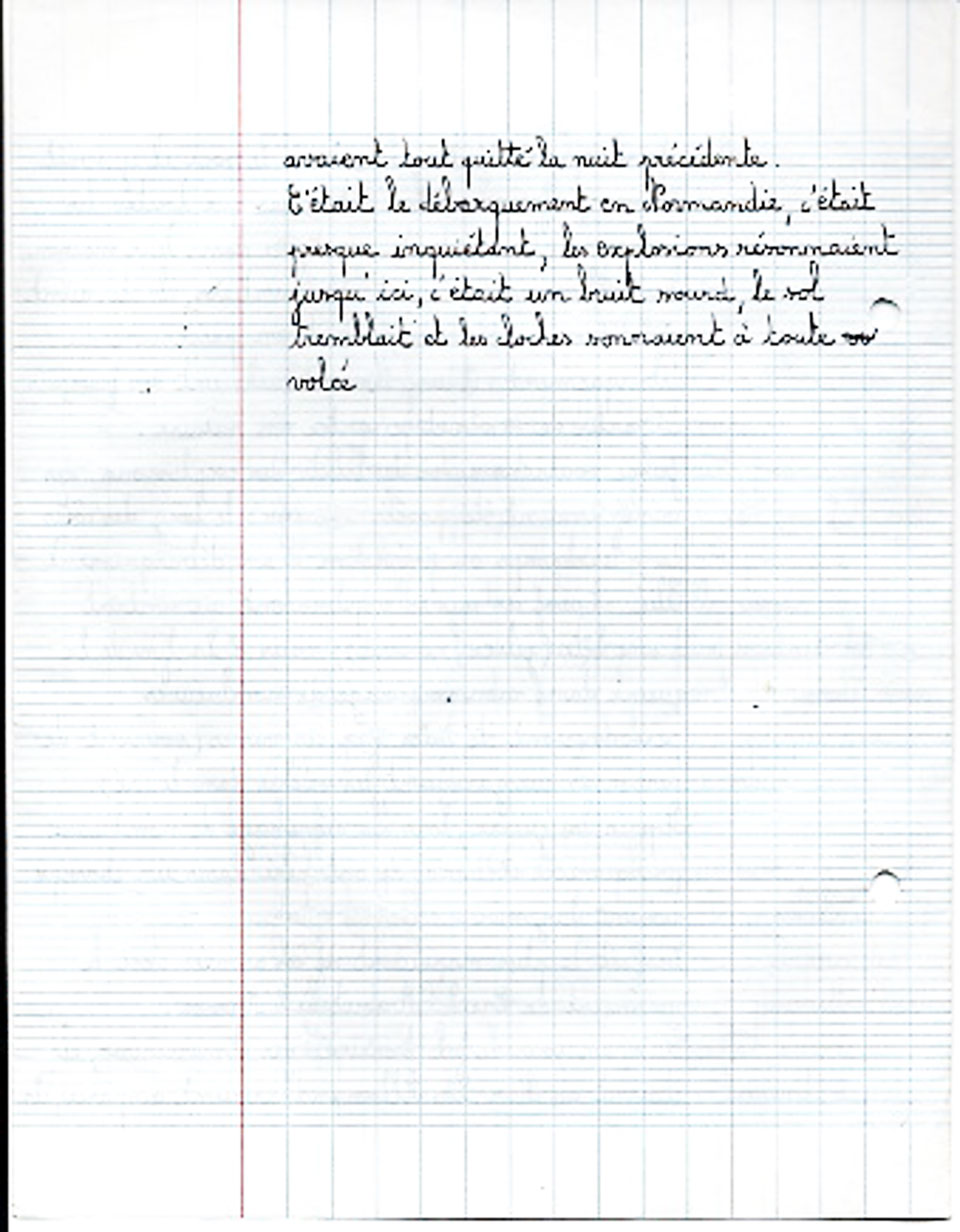 avaient tout quitté la nuit précédente.
C'était le débarquement en Normandie, c'était
presque inquiétant, les explosions résonnaient
jusqu'ici, c'était un bruit sourd, le sol
tremblait et les cloches sonnaient à toute
volée